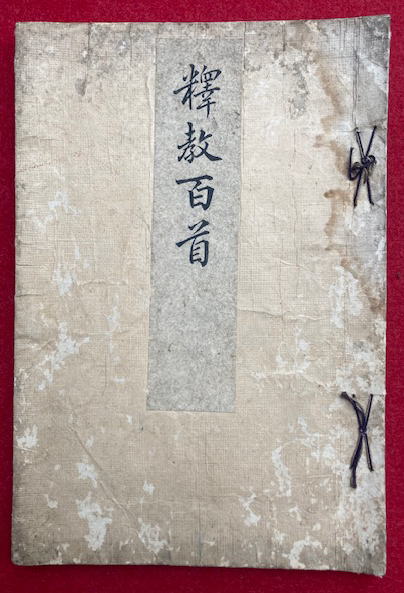 釋教百首